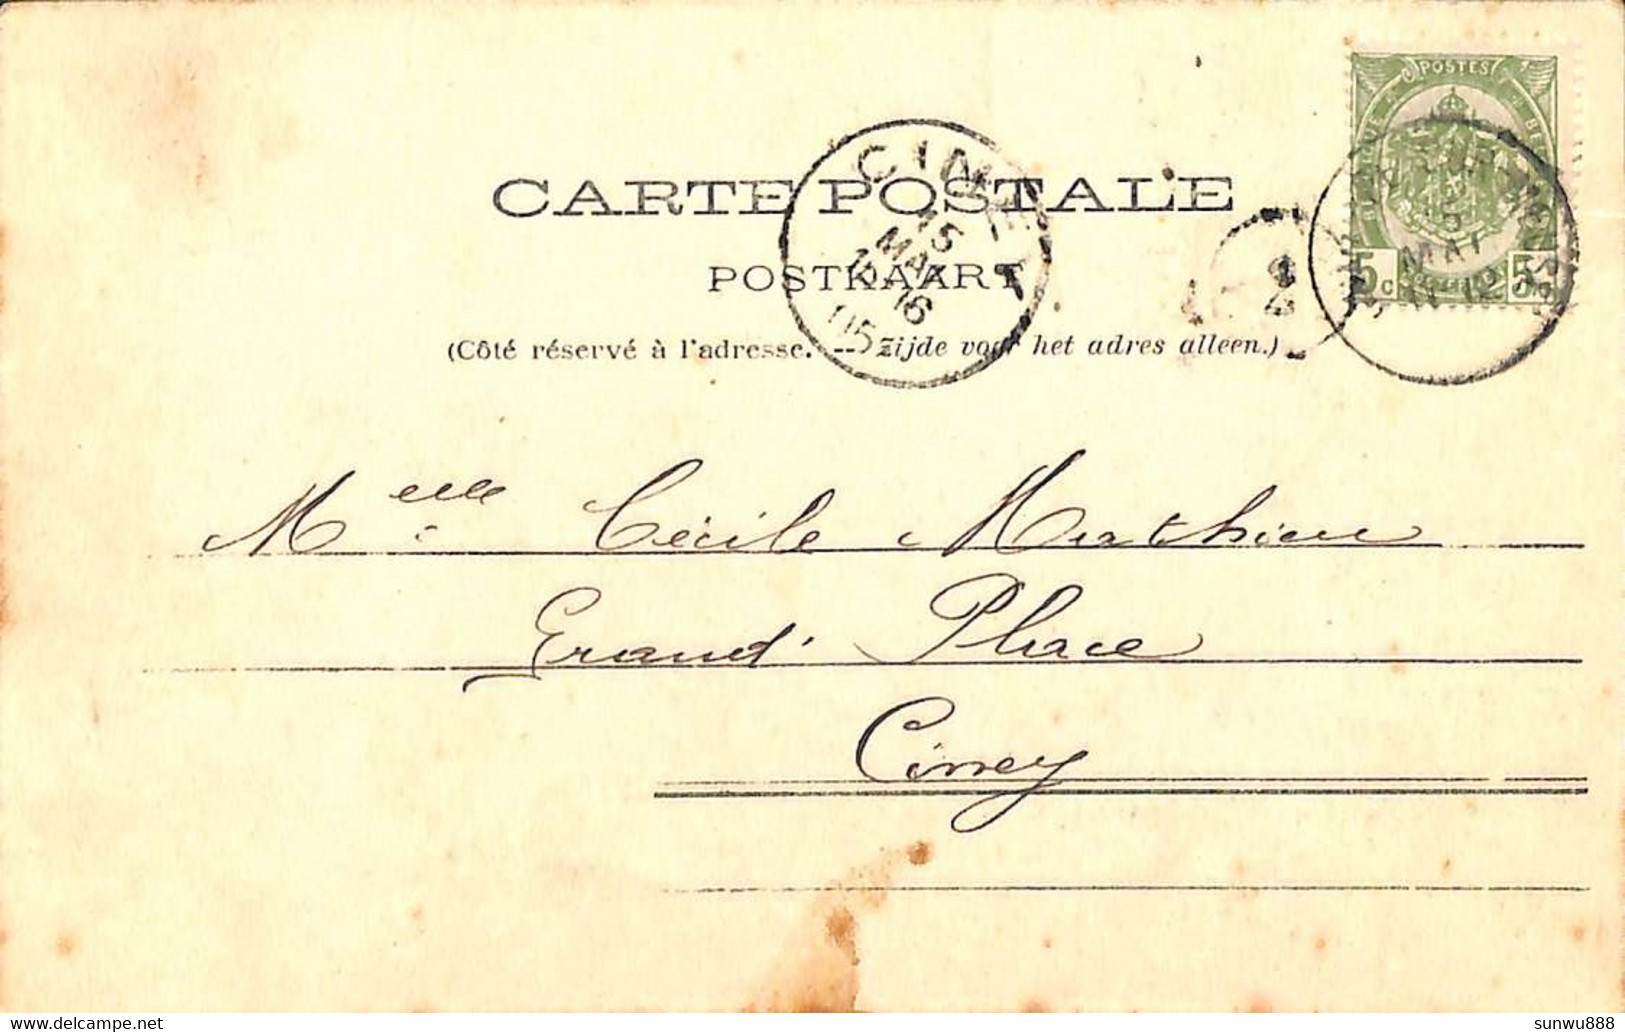 POSTES
5 c 5 c
CARTE POSTALE
CINEY
15
MAI
15-16
05
15
MAI
11-12
POSTKAART
(Côté réservé à l'adresse. -- Zijde voor het adres alleen.)
Melle Cécile Mathieu
Grand' Place
Ciney
sunwu888